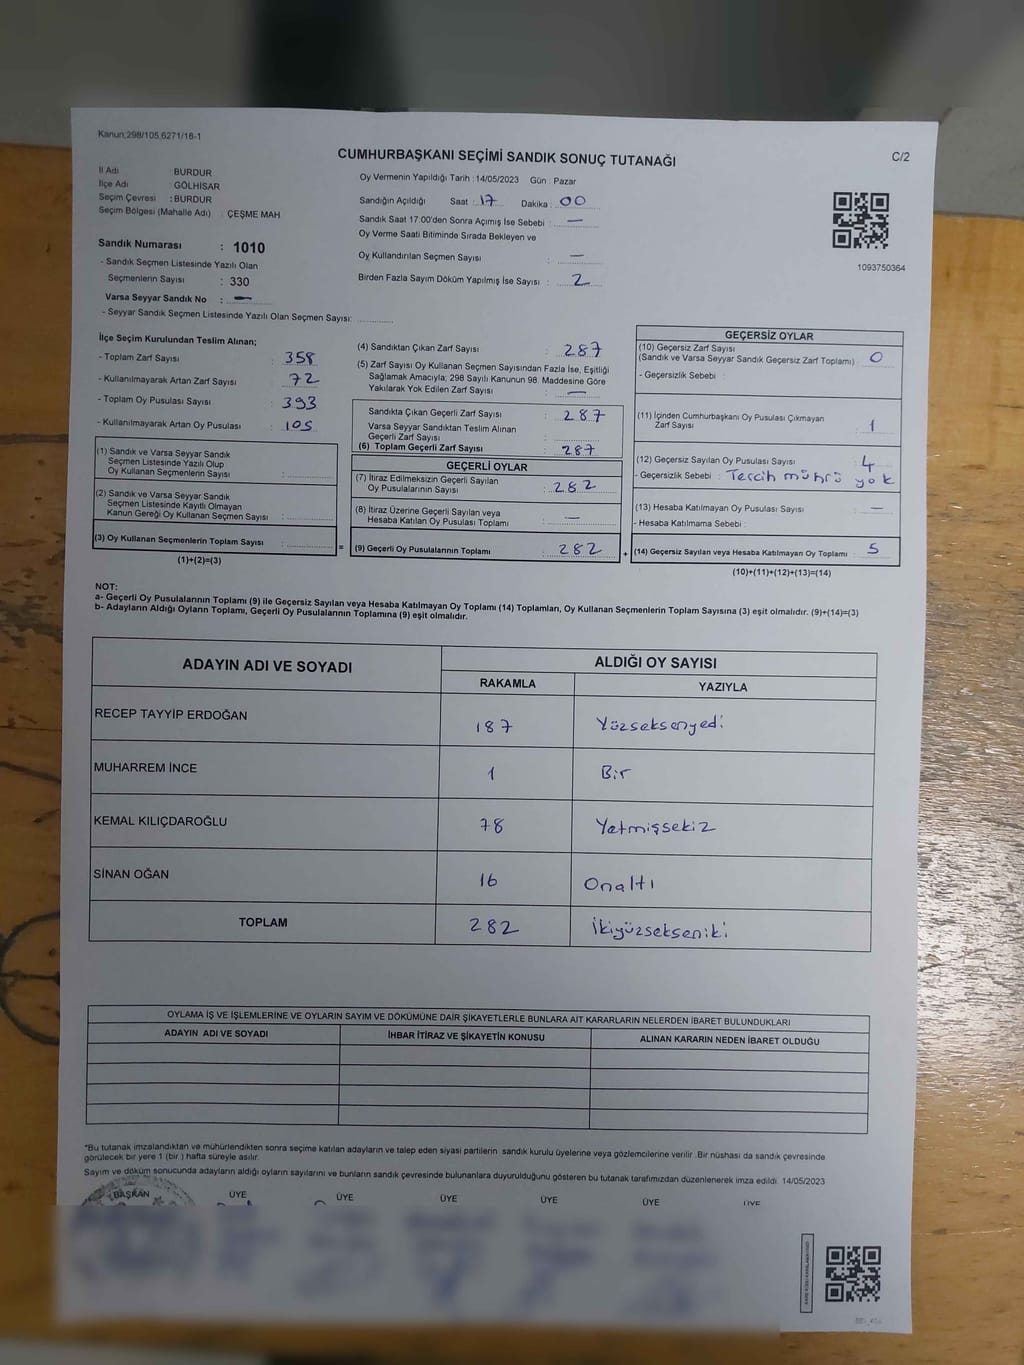 Kanun;298/105,6271/18-1
CUMHURBAŞKANI SEÇİMİ SANDIK SONUÇ TUTANAĞI
C/2
İl Adı : BURDUR
İlçe Adı : GÖLHİSAR
Seçim Çevresi : BURDUR
Seçim Bölgesi (Mahalle Adı) : ÇEŞME MAH
Sandık Numarası : 1010
- Sandık Seçmen Listesinde Yazılı Olan
Seçmenlerin Sayısı : 330
Varsa Seyyar Sandık No : —
- Seyyar Sandık Seçmen Listesinde Yazılı Olan Seçmen Sayısı:
Oy Vermenin Yapıldığı Tarih : 14/05/2023 Gün : Pazar
Sandığın Açıldığı Saat : 17 Dakika : 00
Sandık Saat 17:00'den Sonra Açımış İse Sebebi : —
Oy Verme Saati Bitiminde Sırada Bekleyen ve
Oy Kullandırılan Seçmen Sayısı : —
Birden Fazla Sayım Döküm Yapılmış İse Sayısı : 2
1093750364
İlçe Seçim Kurulundan Teslim Alınan;
- Toplam Zarf Sayısı : 358
- Kullanılmayarak Artan Zarf Sayısı : 72
- Toplam Oy Pusulası Sayısı : 393
- Kullanılmayarak Artan Oy Pusulası : 105
(1) Sandık ve Varsa Seyyar Sandık
Seçmen Listesinde Yazılı Olup
Oy Kullanan Seçmenlerin Sayısı :
(2) Sandık ve Varsa Seyyar Sandık
Seçmen Listesinde Kayıtlı Olmayan
Kanun Gereği Oy Kullanan Seçmen Sayısı :
(3) Oy Kullanan Seçmenlerin Toplam Sayısı :
(1)+(2)=(3)
(4) Sandıktan Çıkan Zarf Sayısı : 287
(5) Zarf Sayısı Oy Kullanan Seçmen Sayısından Fazla İse, Eşitliği
Sağlamak Amacıyla; 298 Sayılı Kanunun 98. Maddesine Göre
Yakılarak Yok Edilen Zarf Sayısı : —
Sandıkta Çıkan Geçerli Zarf Sayısı : 287
Varsa Seyyar Sandıktan Teslim Alınan
Geçerli Zarf Sayısı :
(6) Toplam Geçerli Zarf Sayısı : 287
GEÇERLİ OYLAR
(7) İtiraz Edilmeksizin Geçerli Sayılan
Oy Pusulalarının Sayısı : 282
(8) İtiraz Üzerine Geçerli Sayılan veya
Hesaba Katılan Oy Pusulası Toplamı : —
= (9) Geçerli Oy Pusulalarının Toplamı : 282 +
GEÇERSİZ OYLAR
(10) Geçersiz Zarf Sayısı
(Sandık ve Varsa Seyyar Sandık Geçersiz Zarf Toplamı) : 0
- Geçersizlik Sebebi :
(11) İçinden Cumhurbaşkanı Oy Pusulası Çıkmayan
Zarf Sayısı : 1
(12) Geçersiz Sayılan Oy Pusulası Sayısı : 4
- Geçersizlik Sebebi : Tercih mührü yok
(13) Hesaba Katılmayan Oy Pusulası Sayısı : —
- Hesaba Katılmama Sebebi :
(14) Geçersiz Sayılan veya Hesaba Katılmayan Oy Toplamı : 5
(10)+(11)+(12)+(13)=(14)
NOT:
a- Geçerli Oy Pusulalarının Toplamı (9) ile Geçersiz Sayılan veya Hesaba Katılmayan Oy Toplamı (14) Toplamları, Oy Kullanan Seçmenlerin Toplam Sayısına (3) eşit olmalıdır. (9)+(14)=(3)
b- Adayların Aldığı Oyların Toplamı, Geçerli Oy Pusulalarının Toplamına (9) eşit olmalıdır.
ADAYIN ADI VE SOYADI ALDIĞI OY SAYISI
RAKAMLA YAZIYLA
RECEP TAYYİP ERDOĞAN 187 Yüzseksenyedi
MUHARREM İNCE 1 Bir
KEMAL KILIÇDAROĞLU 78 Yetmişsekiz
SİNAN OĞAN 16 Onaltı
TOPLAM 282 İkiyüzsekseniki
OYLAMA İŞ VE İŞLEMLERİNE VE OYLARIN SAYIM VE DÖKÜMÜNE DAİR ŞİKAYETLERLE BUNLARA AİT KARARLARIN NELERDEN İBARET BULUNDUKLARI
ADAYIN ADI VE SOYADI İHBAR İTİRAZ VE ŞİKAYETİN KONUSU ALINAN KARARIN NEDEN İBARET OLDUĞU
*Bu tutanak imzalandıktan ve mühürlendikten sonra seçime katılan adayların ve talep eden siyasi partilerin sandık kurulu üyelerine veya gözlemcilerine verilir. Bir nüshası da sandık çevresinde
görülecek bir yere 1 (bir ) hafta süreyle asılır.
Sayım ve döküm sonucunda adayların aldığı oyların sayılarını ve bunların sandık çevresinde bulunanlara duyurulduğunu gösteren bu tutanak tarafımızdan düzenlenerek imza edildi. 14/05/2023
BAŞKAN ÜYE ÜYE ÜYE ÜYE ÜYE ÜYE